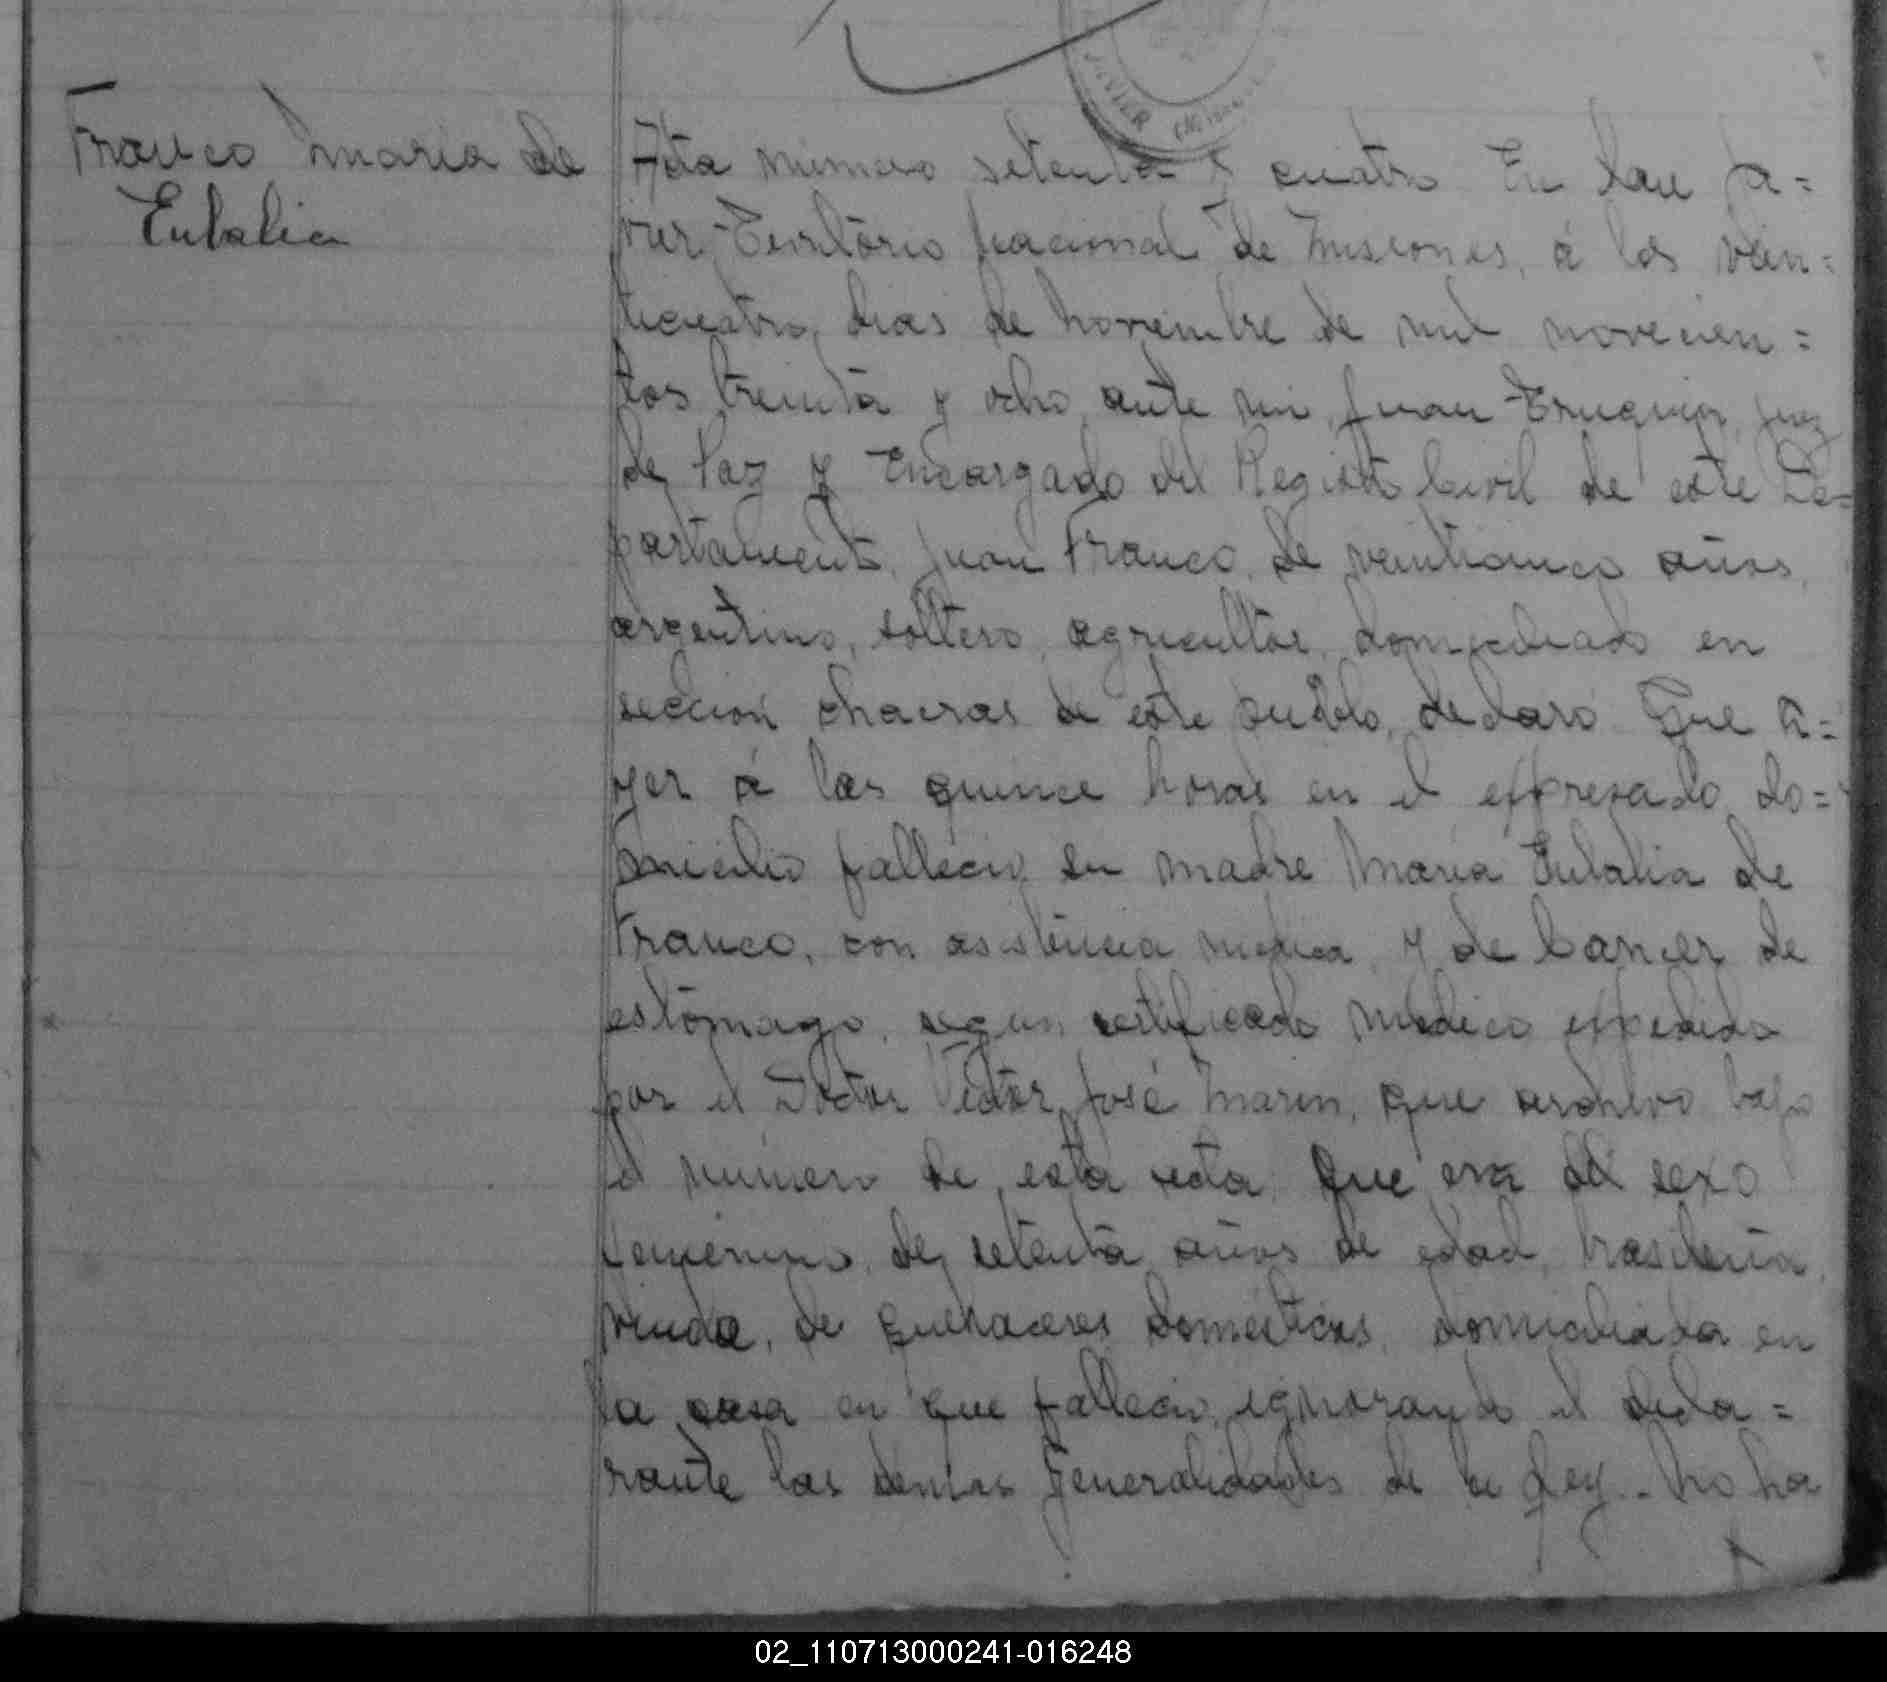 Franco Maria de
Eulalia
JAVIER
Acta número setenta y cuatro En San Ja=
vier Territorio Nacional de Misiones, á los vein=
ticuatro dias de Noviembre de mil novecien=
tos treinta y ocho ante mi, Juan Juez
de Paz y Encargado del Registro Civil de este De=
partamento, Juan Franco, de veinticinco años,
argentino, soltero, agricultor, domiciliado en
sección chacras de este pueblo, declaró: Que a=
yer á las quince horas en el expresado do=
micilio falleció su madre Maria Eulalia de
Franco, con asistencia medica, y de Cancer de
estómago, segun certificado médico expedido
por el Doctor Victor José Marin, que archivo bajo
el número de esta acta, Que era del sexo
femenino, de setenta años de edad, brasileña,
viuda, de quehaceres domésticos, domiciliada en
la casa en que falleció, ignorando el decla=
rante las demas generalidades de la Ley.- No ha
02_110713000241-016248